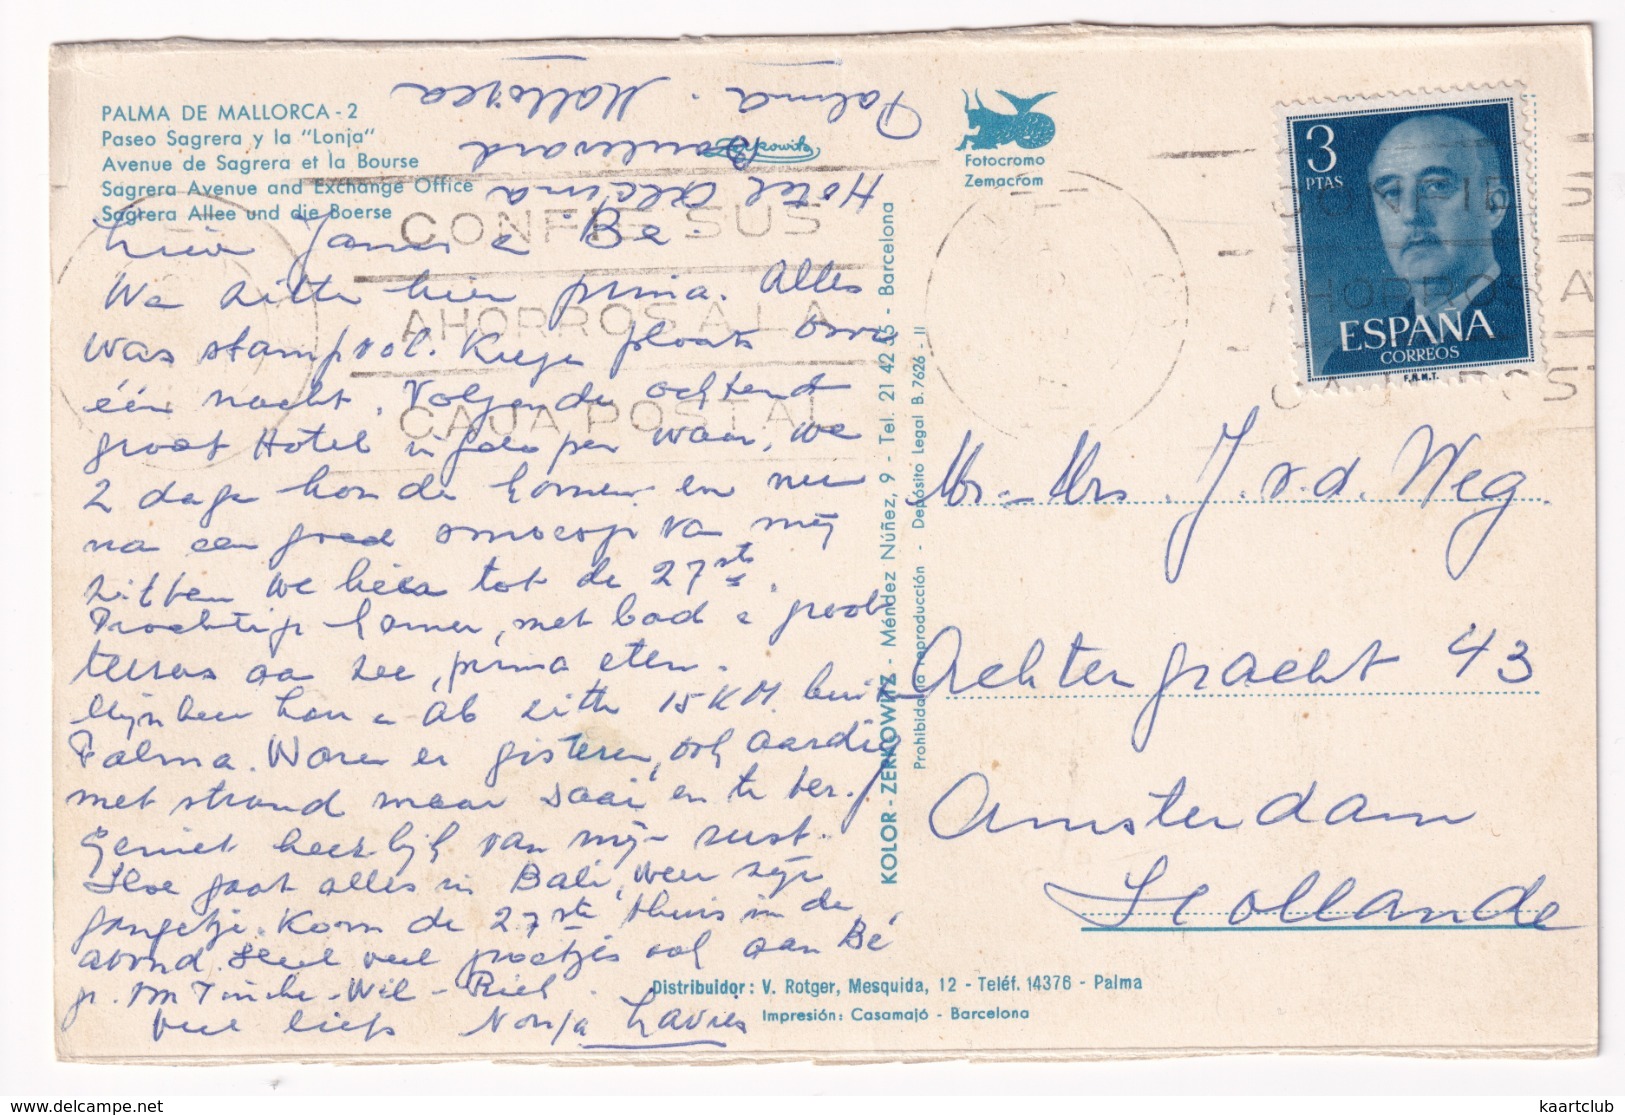 PALMA DE MALLORCA - 2
Paseo Sagrera y la "Lonja"
Avenue de Sagrera et la Bourse
Sagrera Avenue and Exchange Office
Sagrera Allee und die Boerse
Hotel Alcina
Boulevard
Palma. Mallorca
Zerkowitz
Fotocromo
Zemacrom
3
PTAS
ESPAÑA
CORREOS
F.N.M.T.
CONFIE SUS
AHORROS A LA
CAJA POSTAL
CONFIE S
AHORROS A
CAJA POST
We zitten hier prima. Alles
was stampvol. Kregen plaats voor
één nacht. Volgende ochtend
groot Hotel in gelopen waar we
2 dage konde komen en nu
na een goed smoesje van mij
zitten we hier tot de 27ste.
Prachtige kamer, met bad & groot
terras aan zee, prima eten.
Mijnheer Kon & Ab zitte 15 KM. buiten
Palma. Waren er gisteren, ook aardig
met strand maar saai en te ver.
Geniet heerlijk van mijn rust.
Hoe gaat alles in Bali, weer zijn
gangetje. Kom de 27ste thuis in de
avond. Heel veel groetjes ook aan Bé
Wil - Riek.
veel liefs
KOLOR - ZERKOWITZ - Méndez Núñez, 9 - Tel. 21 42 65 - Barcelona
Prohibida la reproducción - Depósito Legal B. 7626 - II
Mr - Mrs. J. v. d. Weg
Achtergracht 43
Amsterdam
Hollande
Distribuidor: V. Rotger, Mesquida, 12 - Teléf. 14376 - Palma
Impresión: Casamajó - Barcelona
delcampe.net
kaartclub